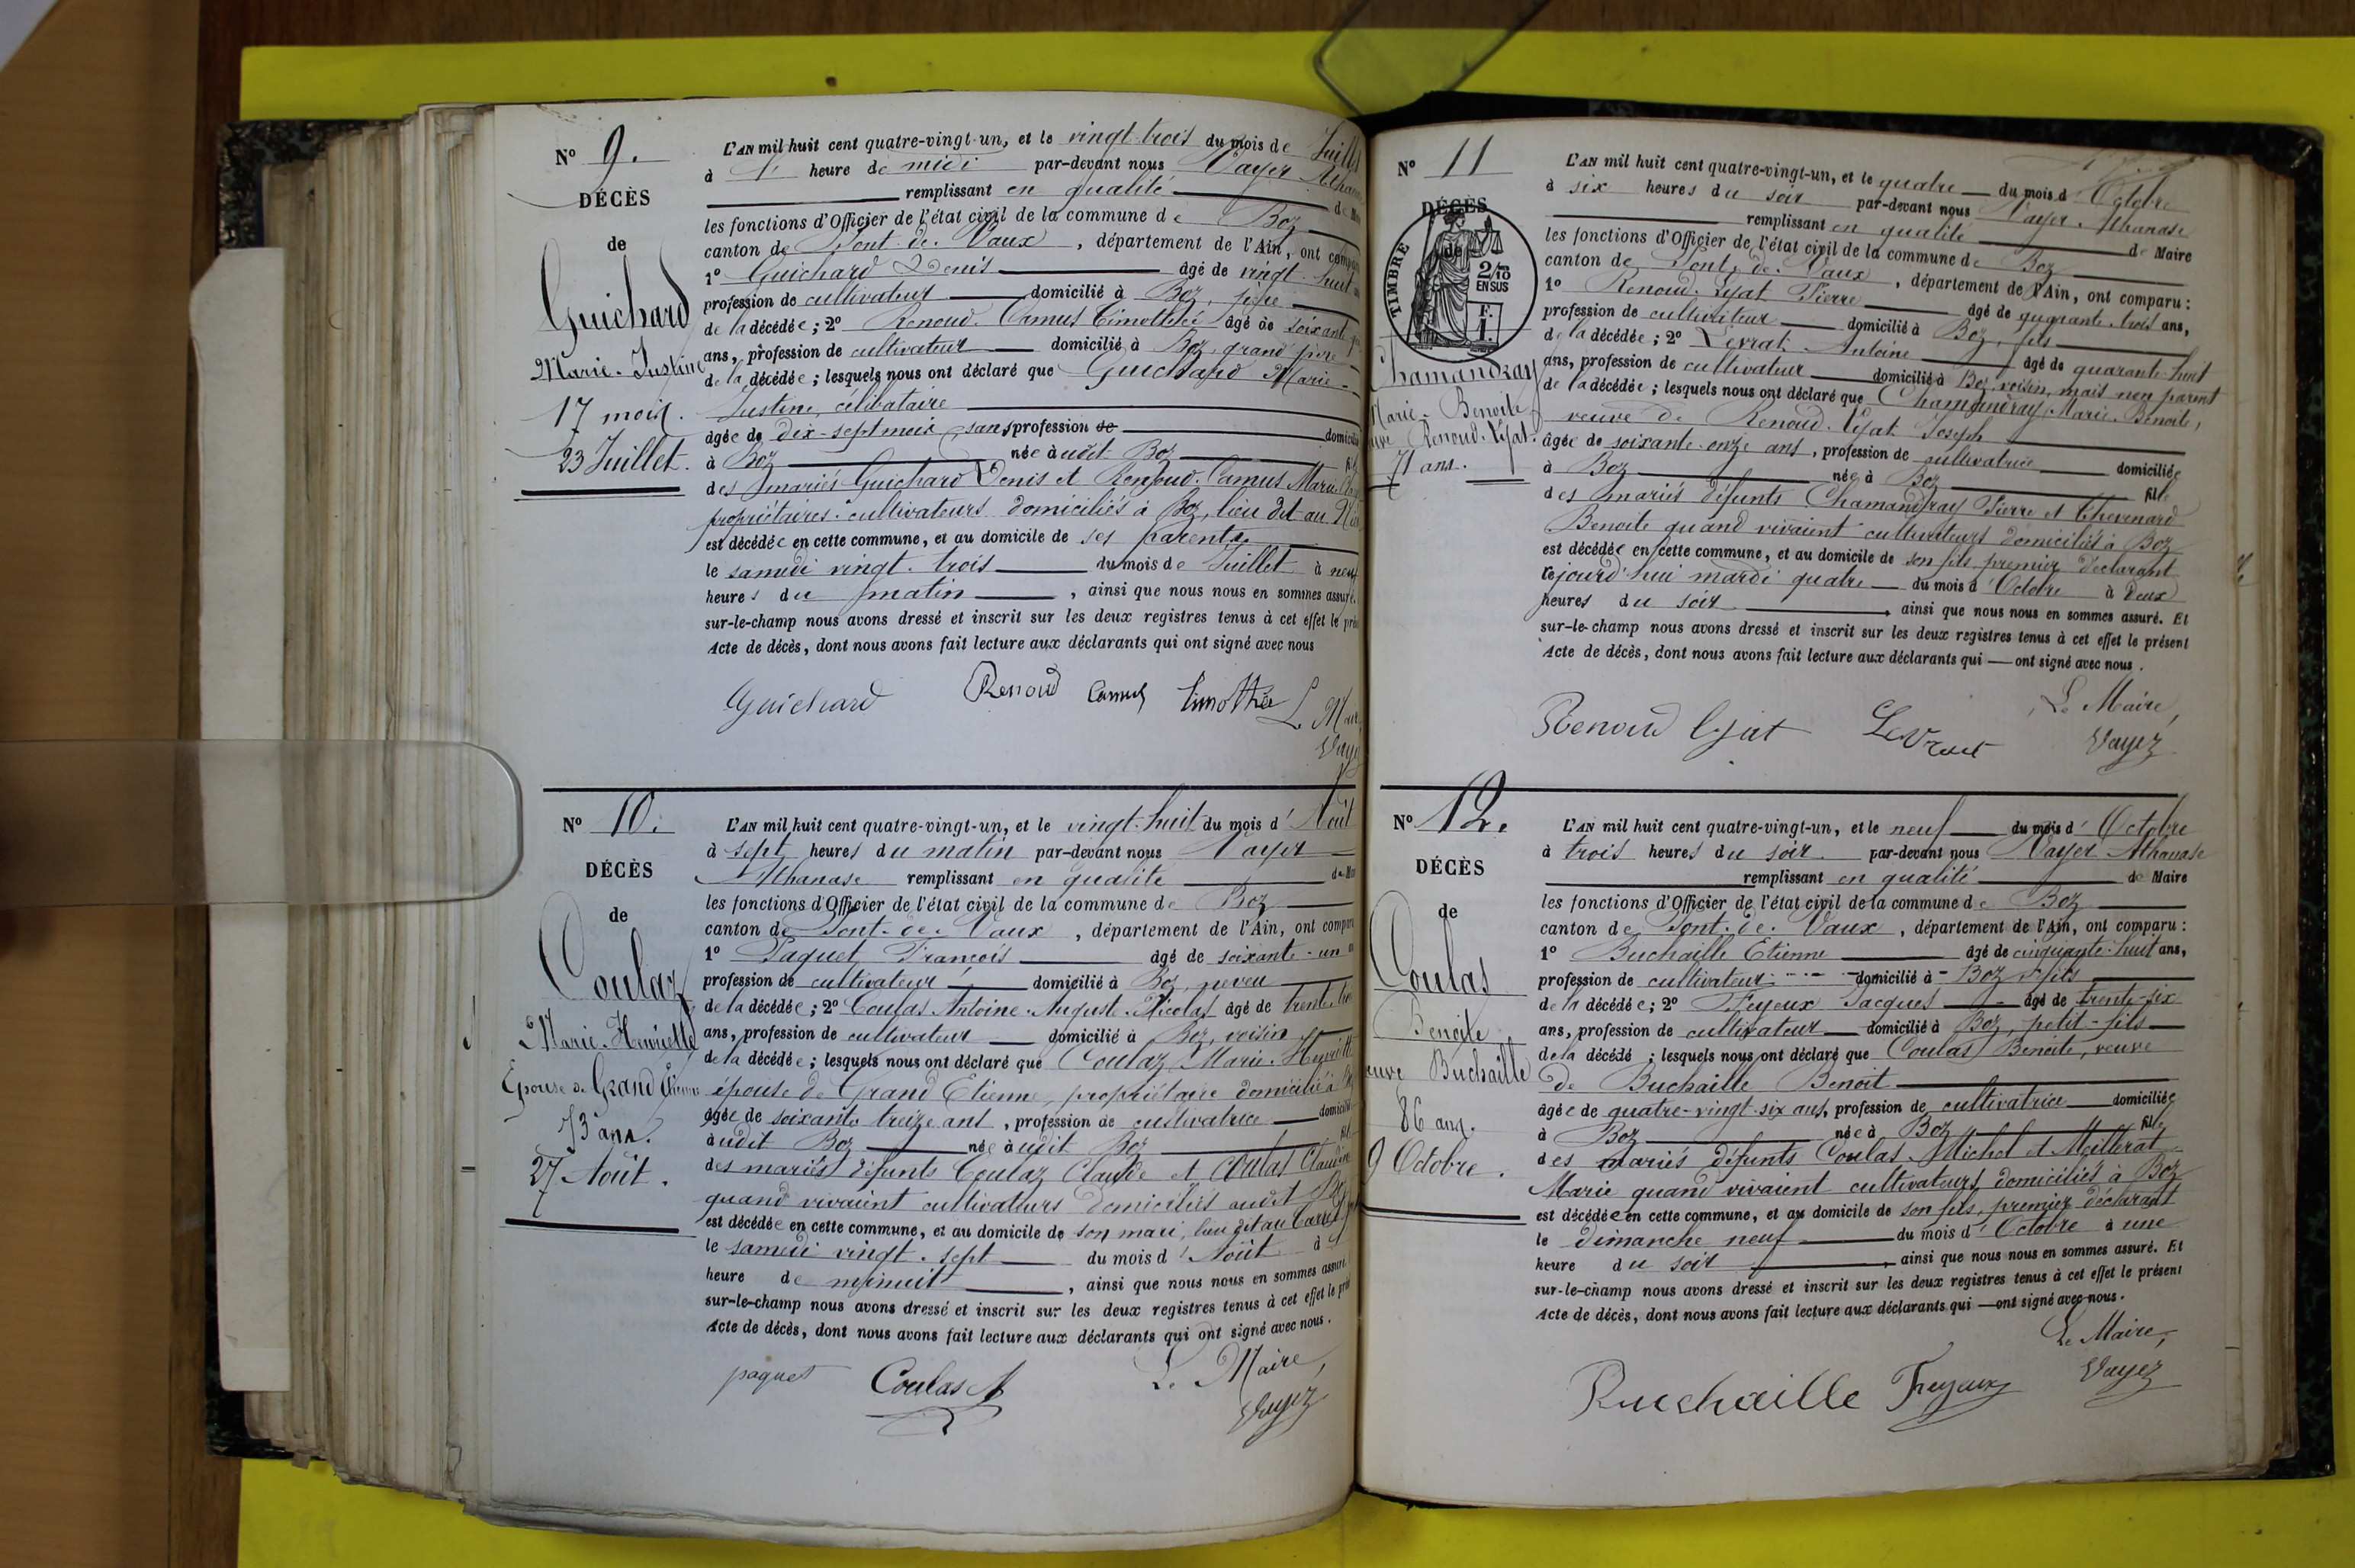 N° 9.
DÉCÈS
de
Guichard
Marie-Justine
17 mois.
23 Juillet.
L'AN mil huit cent quatre-vingt-un, et le vingt-trois du mois de Juillet
à 1 heure de midi par-devant nous Vayer
remplissant en qualité de
les fonctions d'Officier de l'état civil de la commune de Boz
canton de Pont-de-Vaux, département de l'Ain, ont
1° Guichard Denis âgé de vingt-huit
profession de cultivateur domicilié à Boz, père
de la décédée; 2° Renoud-Camus Timothée âgé de soixante
ans, profession de cultivateur domicilié à Boz, grand père
de la décédée; lesquels nous ont déclaré que Guichard Marie-
Justine, célibataire
âgée de dix-sept mois, sans profession
à Boz née audit Boz
des mariés Guichard Denis et Renoud-Camus Marie
propriétaires-cultivateurs domiciliés à Boz, lieu dit au
est décédée en cette commune, et au domicile de ses parents
le samedi vingt-trois du mois de Juillet à
heures du matin, ainsi que nous nous en sommes assuré.
sur-le-champ nous avons dressé et inscrit sur les deux registres tenus à cet effet le
Acte de décès, dont nous avons fait lecture aux déclarants qui ont signé avec nous
Guichard Renoud Camus Timothée Le
N° 10.
DÉCÈS
de
Coulaz
Marie-Henriette
Epouse de Grand Etienne
73 ans.
27 Août.
L'AN mil huit cent quatre-vingt-un, et le vingt-huit du mois d'Août
à sept heures du matin par-devant nous Vayer
Athanase remplissant en qualité de
les fonctions d'Officier de l'état civil de la commune de Boz
canton de Pont-de-Vaux, département de l'Ain, ont
1° Paquet François âgé de soixante-un
profession de cultivateur domicilié à Boz, neveu
de la décédée; 2° Coulas Antoine-Auguste-Nicolas âgé de trente
ans, profession de cultivateur domicilié à Boz, voisin
de la décédée; lesquels nous ont déclaré que Coulaz Marie-Henriette
épouse de Grand Etienne, propriétaire domicilié à
âgée de soixante treize ans, profession de cultivatrice
audit Boz née audit Boz
des mariés défunts Coulaz Claude et Coulas Claudine
quand vivaient cultivateurs domiciliés audit Boz
est décédée en cette commune, et au domicile de son mari, lieu dit au
le samedi vingt-sept du mois d'Août à
heure de minuit, ainsi que nous nous en sommes
sur-le-champ nous avons dressé et inscrit sur les deux registres tenus à cet effet le
Acte de décès, dont nous avons fait lecture aux déclarants qui ont signé avec nous.
paquet Coulas A Le Maire,
Vayez
N° 11
DÉCÈS
de
TIMBRE
2/10 EN SUS
F. 1.
Chamandray
Marie-Benoite
Renoud-Lyat.
71 ans.
L'AN mil huit cent quatre-vingt-un, et le quatre du mois d'Octobre
à six heures du soir par-devant nous Vayer Athanase
remplissant en qualité de Maire
les fonctions d'Officier de l'état civil de la commune de Boz
canton de Pont-de-Vaux, département de l'Ain, ont comparu:
1° Renoud-Lyat Pierre âgé de quarante-trois ans,
profession de cultivateur domicilié à Boz, fils
de la décédée; 2° Levrat Antoine âgé de quarante-huit
ans, profession de cultivateur domicilié à Boz, voisin, mais non parent
de la décédée; lesquels nous ont déclaré que Chamandray Marie-Benoite,
veuve de Renoud-Lyat Joseph
âgée de soixante-onze ans, profession de cultivatrice domiciliée
à Boz née à Boz fille
des mariés défunts Chamandray Pierre et Thevenard
Benoite quand vivaient cultivateurs domiciliés à Boz
est décédée en cette commune, et au domicile de son fils, premier déclarant
cejourd'hui mardi quatre du mois d'Octobre à deux
heures du soir, ainsi que nous nous en sommes assuré. Et
sur-le-champ nous avons dressé et inscrit sur les deux registres tenus à cet effet le présent
Acte de décès, dont nous avons fait lecture aux déclarants qui ont signé avec nous.
Renoud lyat Levrat Le Maire,
Vayez
N° 12.
DÉCÈS
de
Coulas
Benoite
Buchaille
86 ans.
9 Octobre.
L'AN mil huit cent quatre-vingt-un, et le neuf du mois d'Octobre
à trois heures du soir par-devant nous Vayer Athanase
remplissant en qualité de Maire
les fonctions d'Officier de l'état civil de la commune de Boz
canton de Pont-de-Vaux, département de l'Ain, ont comparu:
1° Buchaille Etienne âgé de cinquante-huit ans,
profession de cultivateur domicilié à Boz, fils
de la décédée; 2° Feyeux Jacques âgé de trente-six
ans, profession de cultivateur domicilié à Boz, petit-fils
de la décédé; lesquels nous ont déclaré que Coulas Benoite, veuve
de Buchaille Benoit
âgée de quatre-vingt-six ans, profession de cultivatrice domiciliée
à Boz née à Boz fille
des mariés défunts Coulas Michel et Meillerat
Marie quand vivaient cultivateurs domiciliés à Boz
est décédée en cette commune, et au domicile de son fils, premier déclarant
le dimanche neuf du mois d'Octobre à une
heure du soir, ainsi que nous nous en sommes assuré. Et
sur-le-champ nous avons dressé et inscrit sur les deux registres tenus à cet effet le présent
Acte de décès, dont nous avons fait lecture aux déclarants qui ont signé avec nous.
Le Maire,
Buchaille Feyeux Vayez